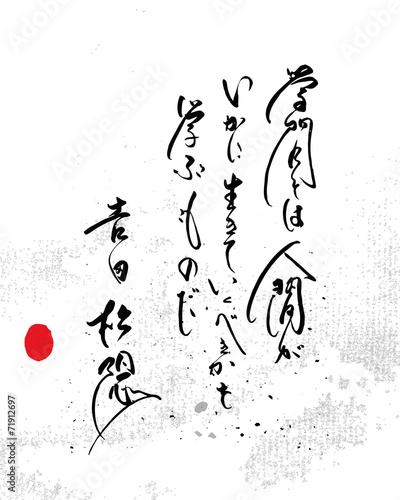 学問とは人間が
いかに生きていくべきかを
学ぶものだ
吉田松陰
Adobe Stock | #71912697